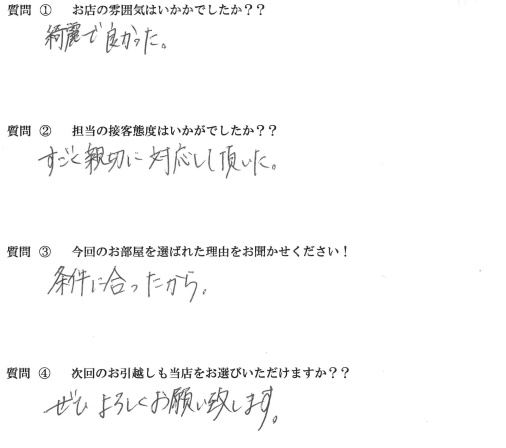 質問 ① お店の雰囲気はいかかでしたか？？
綺麗で良かった。
質問 ② 担当の接客態度はいかがでしたか？？
すごく親切に対応して頂いた。
質問 ③ 今回のお部屋を選ばれた理由をお聞かせください！
条件に合ったから。
質問 ④ 次回のお引越しも当店をお選びいただけますか？？
ぜひよろしくお願い致します。